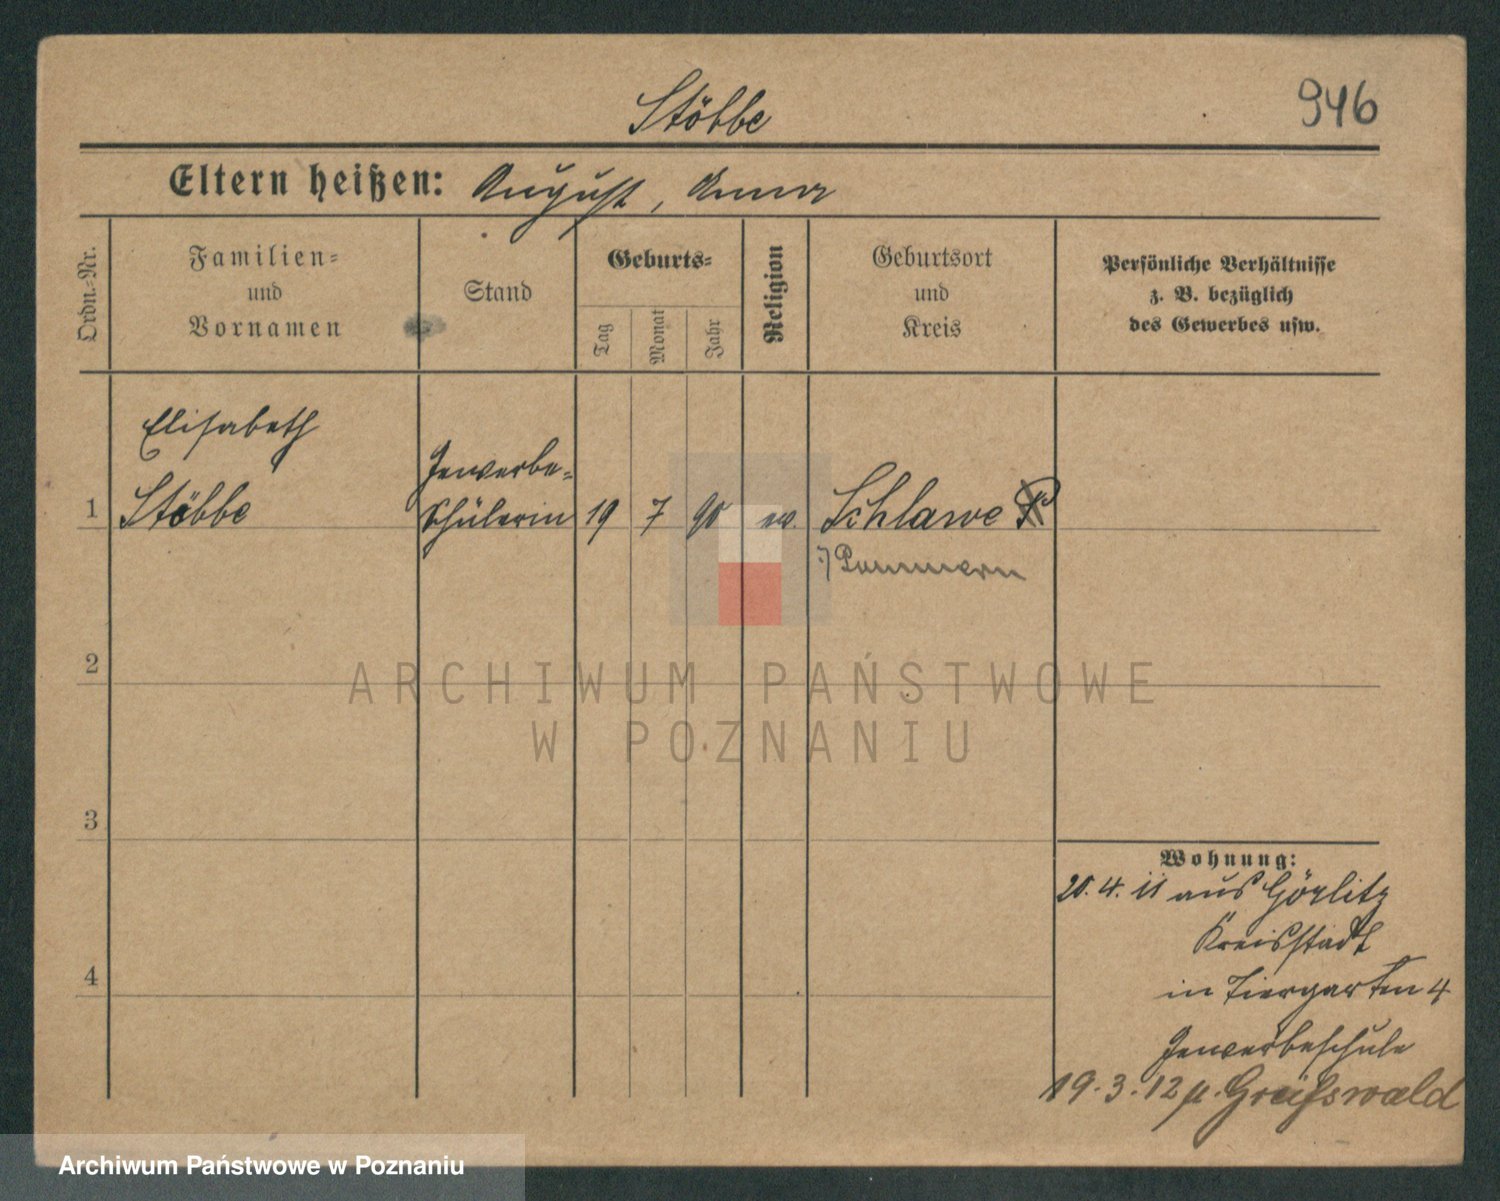 946
Stöbbe
Eltern heißen: August, Anna
Ordn.-Nr.
Familien-
und
Vornamen
Stand
Geburts-
Tag
Monat
Jahr
Religion
Geburtsort
und
Kreis
Persönliche Verhältnisse
z. B. bezüglich
des Gewerbes usw.
Elisabeth
Gewerbe-
1 Stöbbe Schülerin 19 7 90 ev. Schlawe
Pommern
2
ARCHIWUM PAŃSTWOWE
W POZNANIU
3
Wohnung:
20. 4. 11 aus Görlitz
Kreisstadt
4
in Tiergarten 4
Gewerbeschule
19. 3. 12 n. Greifswald
Archiwum Państwowe w Poznaniu